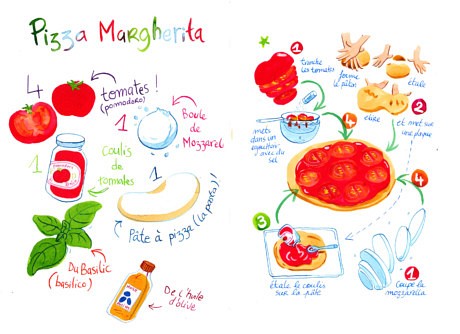 Pizza Margherita
4
tomates!
(pomodoro)
1
Boule
de
Mozzarel
1
Coulis
de
tomates
1
Pâte à pizza (la pasta)!
Du Basilic
(basilico)
De l'huile
d'olive
1
tranche
les tomates
forme
le pâton
étale
étire
2
et met sur
une plaque
mets
dans un
égouttoir
avec du
sel
4
4
3
étale le coulis
sur la pâte
1
Coupe la
mozzarella